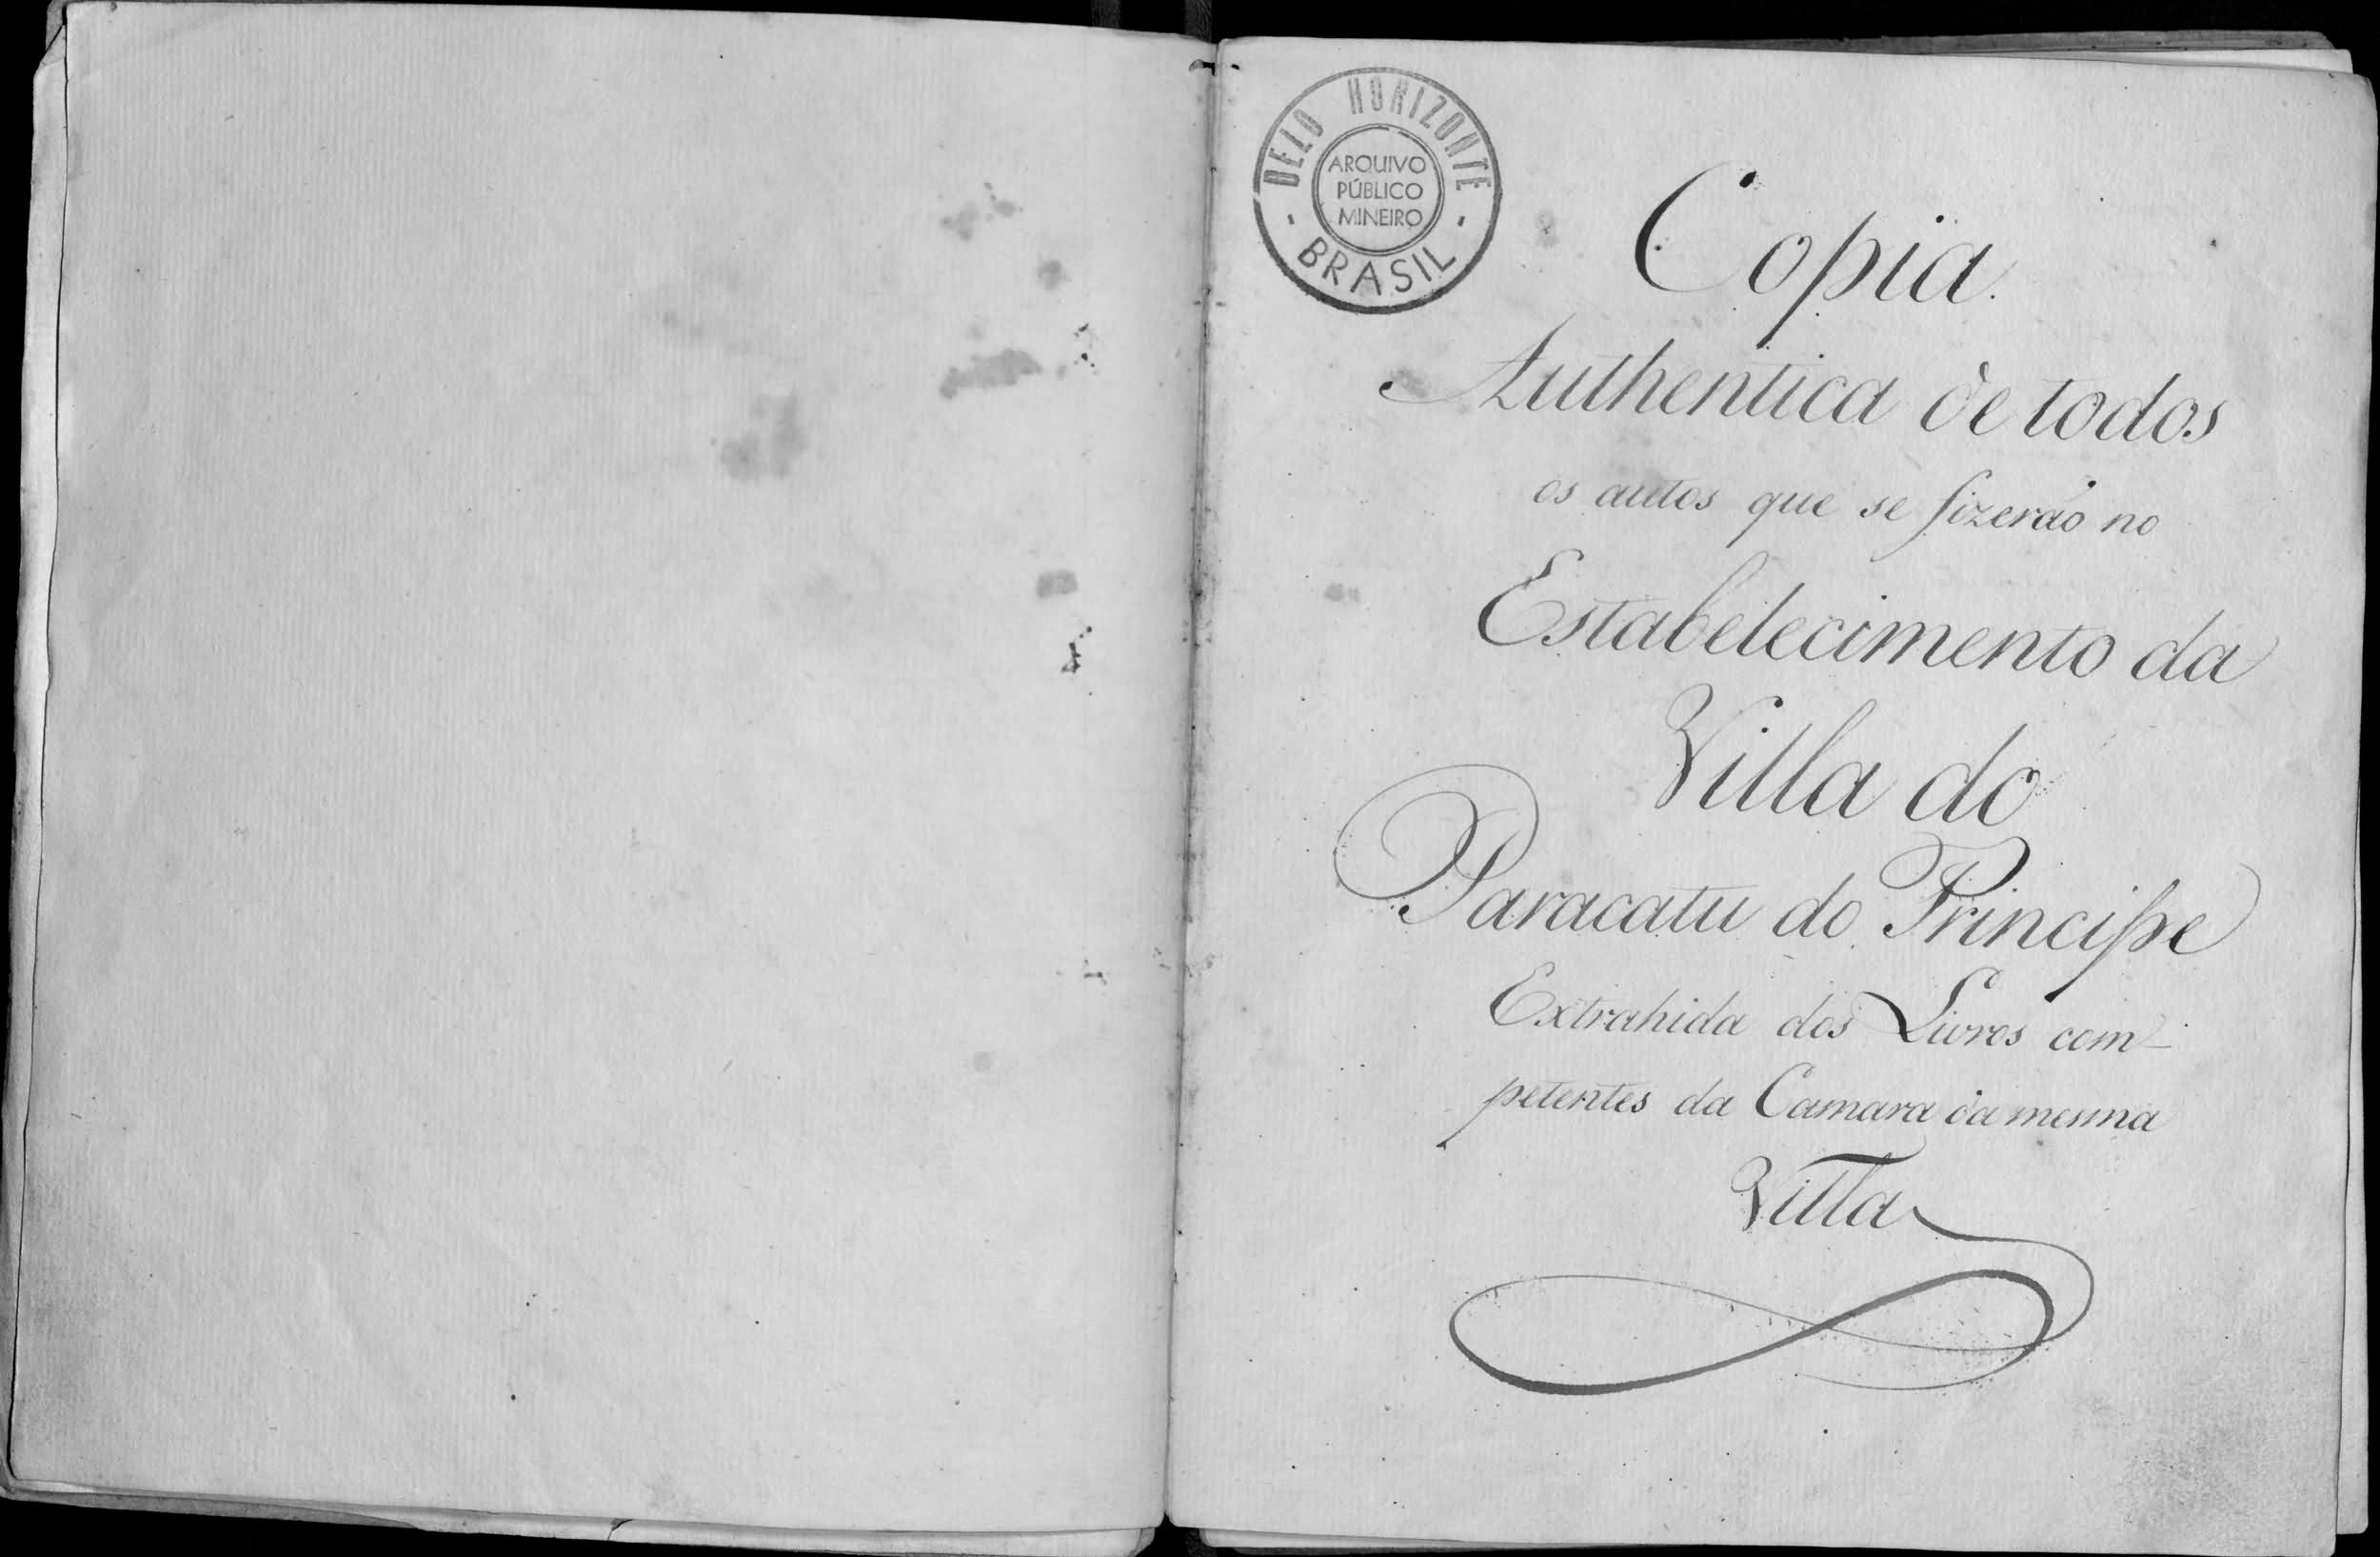 BELO HORIZONTE
ARQUIVO
PÚBLICO
MINEIRO
BRASIL
Copia
Authentica de todos
os autos que se fizerão no
Estabelecimento da
Villa do
Paracatu do Principe
Extrahida dos Livros com-
petentes da Camara da mesma
Villa